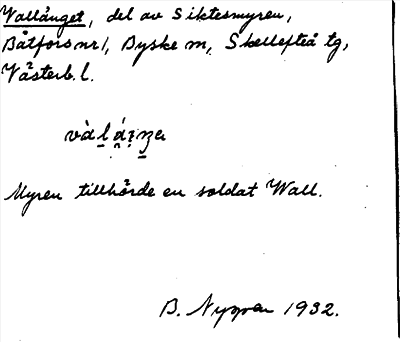 Wallånget, del av Siktesmyren,
Båtfors nr 1, Byske sn, Skellefteå tg,
Västerb. l.
Myren tillhörde en soldat Wall.
B. Nygren 1932.